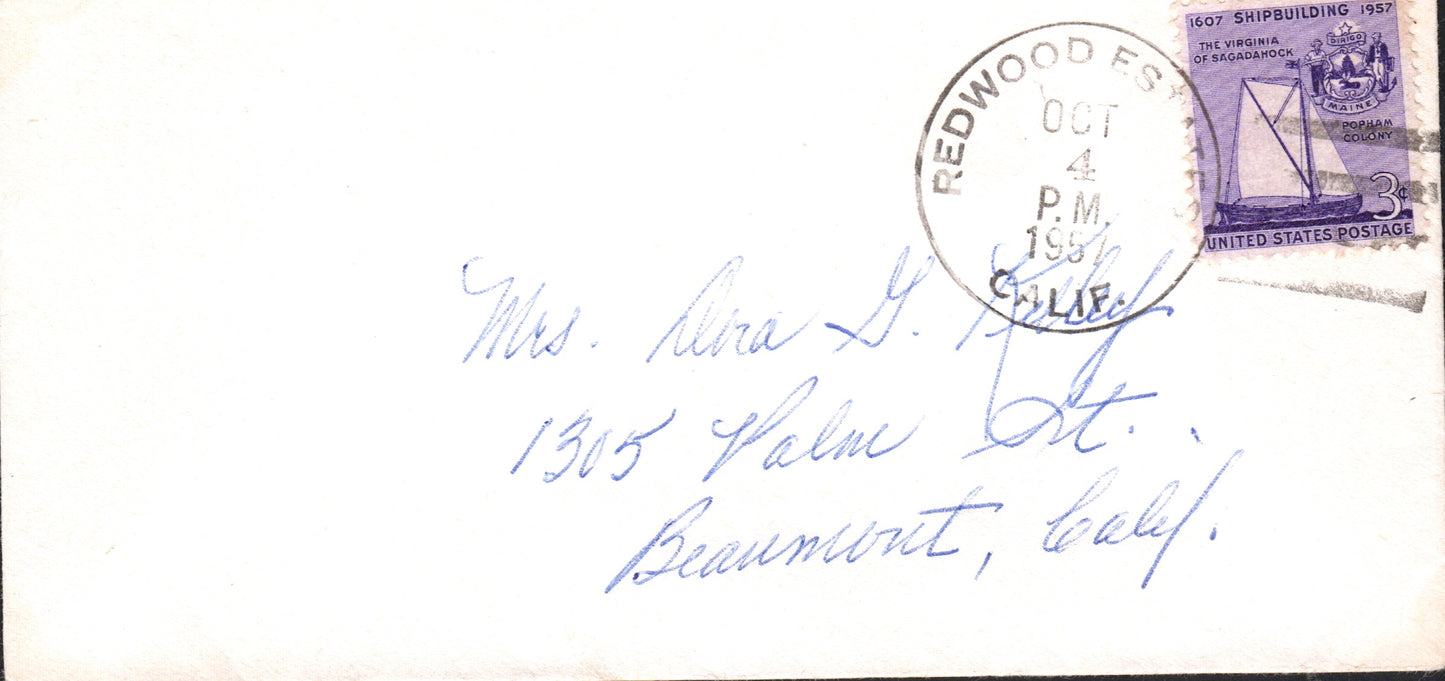 1607 SHIPBUILDING 1957
THE VIRGINIA
OF SAGADAHOCK
DIRIGO
MAINE
POPHAM
COLONY
3¢
UNITED STATES POSTAGE
REDWOOD ESTATES
OCT
4
P.M.
1957
CALIF.
Mrs. Dora G.
1305 Palm St.
Beaumont, Calif.